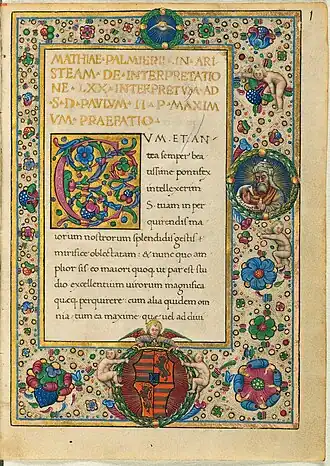 1
MATHIAE · PALMIERII · IN · ARI
STEAM · DE · INTERPRETATIO
NE · LXX · INTERPRETVM · AD
· S · D · PAVLVM · II · P · MAXIM
VM · PRAEFATIO ·
CVM · ET · AN
tea semper bea
tissime pontifex
intellexerim
S. tuam in per
quirendis ma
iorum nostrorum splendidis gestis ·
mirifice oblectatam: & nunc quo am
plior sis eo maiori quoq. ut par est stu
dio excellentium uirorum magnifica
quęq. perquirere: cum alia quidem om
nia: tum ea maxime: quę uel ad diui